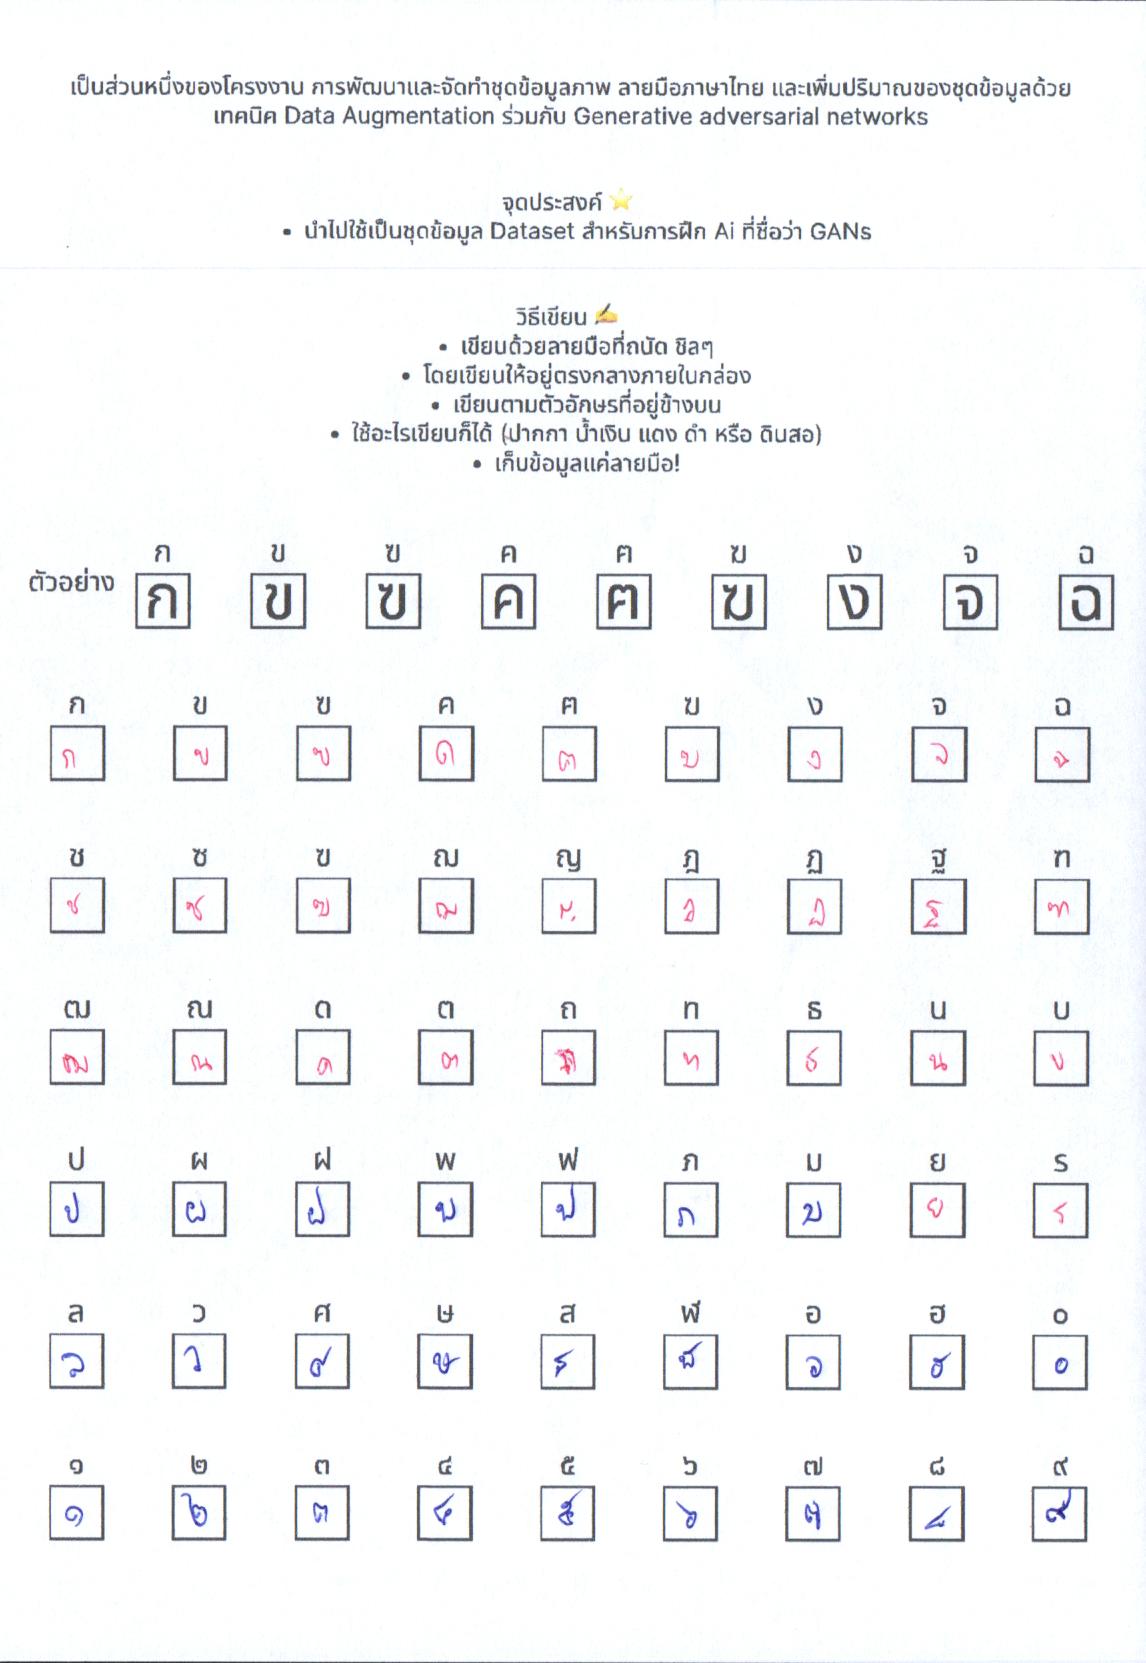 เป็นส่วนหนึ่งของโครงงาน การพัฒนาและจัดทำชุดข้อมูลภาพ ลายมือภาษาไทย และเพิ่มปริมาณของชุดข้อมูลด้วย
เทคนิค Data Augmentation ร่วมกับ Generative adversarial networks
จุดประสงค์ ⭐
• นำไปใช้เป็นชุดข้อมูล Dataset สำหรับการฝึก Ai ที่ชื่อว่า GANs
วิธีเขียน ✍
• เขียนด้วยลายมือที่ถนัด ชิลๆ
• โดยเขียนให้อยู่ตรงกลางภายในกล่อง
• เขียนตามตัวอักษรที่อยู่ข้างบน
• ใช้อะไรเขียนก็ได้ (ปากกา น้ำเงิน แดง ดำ หรือ ดินสอ)
• เก็บข้อมูลแค่ลายมือ!
ก ข ฃ ค ฅ ฆ ง จ ฉ
ตัวอย่าง ก ข ฃ ค ฅ ฆ ง จ ฉ
ก ข ฃ ค ฅ ฆ ง จ ฉ
ก ข ฃ ค ฅ ฆ ง จ ฉ
ช ซ ฃ ฌ ญ ฎ ฏ ฐ ฑ
ช ซ ฃ ฌ ฎ ฏ ฐ ฑ
ฒ ณ ด ต ถ ท ธ น บ
ฒ ณ ด ต ท ธ น บ
ป ผ ฝ พ ฟ ภ ม ย ร
ป ผ ฝ พ ฟ ภ ม ย ร
ล ว ศ ษ ส ฬ อ ฮ ๐
ล ว ศ ษ ส ฬ อ ฮ ๐
๑ ๒ ๓ ๔ ๕ ๖ ๗ ๘ ๙
๑ ๒ ๓ ๔ ๕ ๖ ๗ ๘ ๙